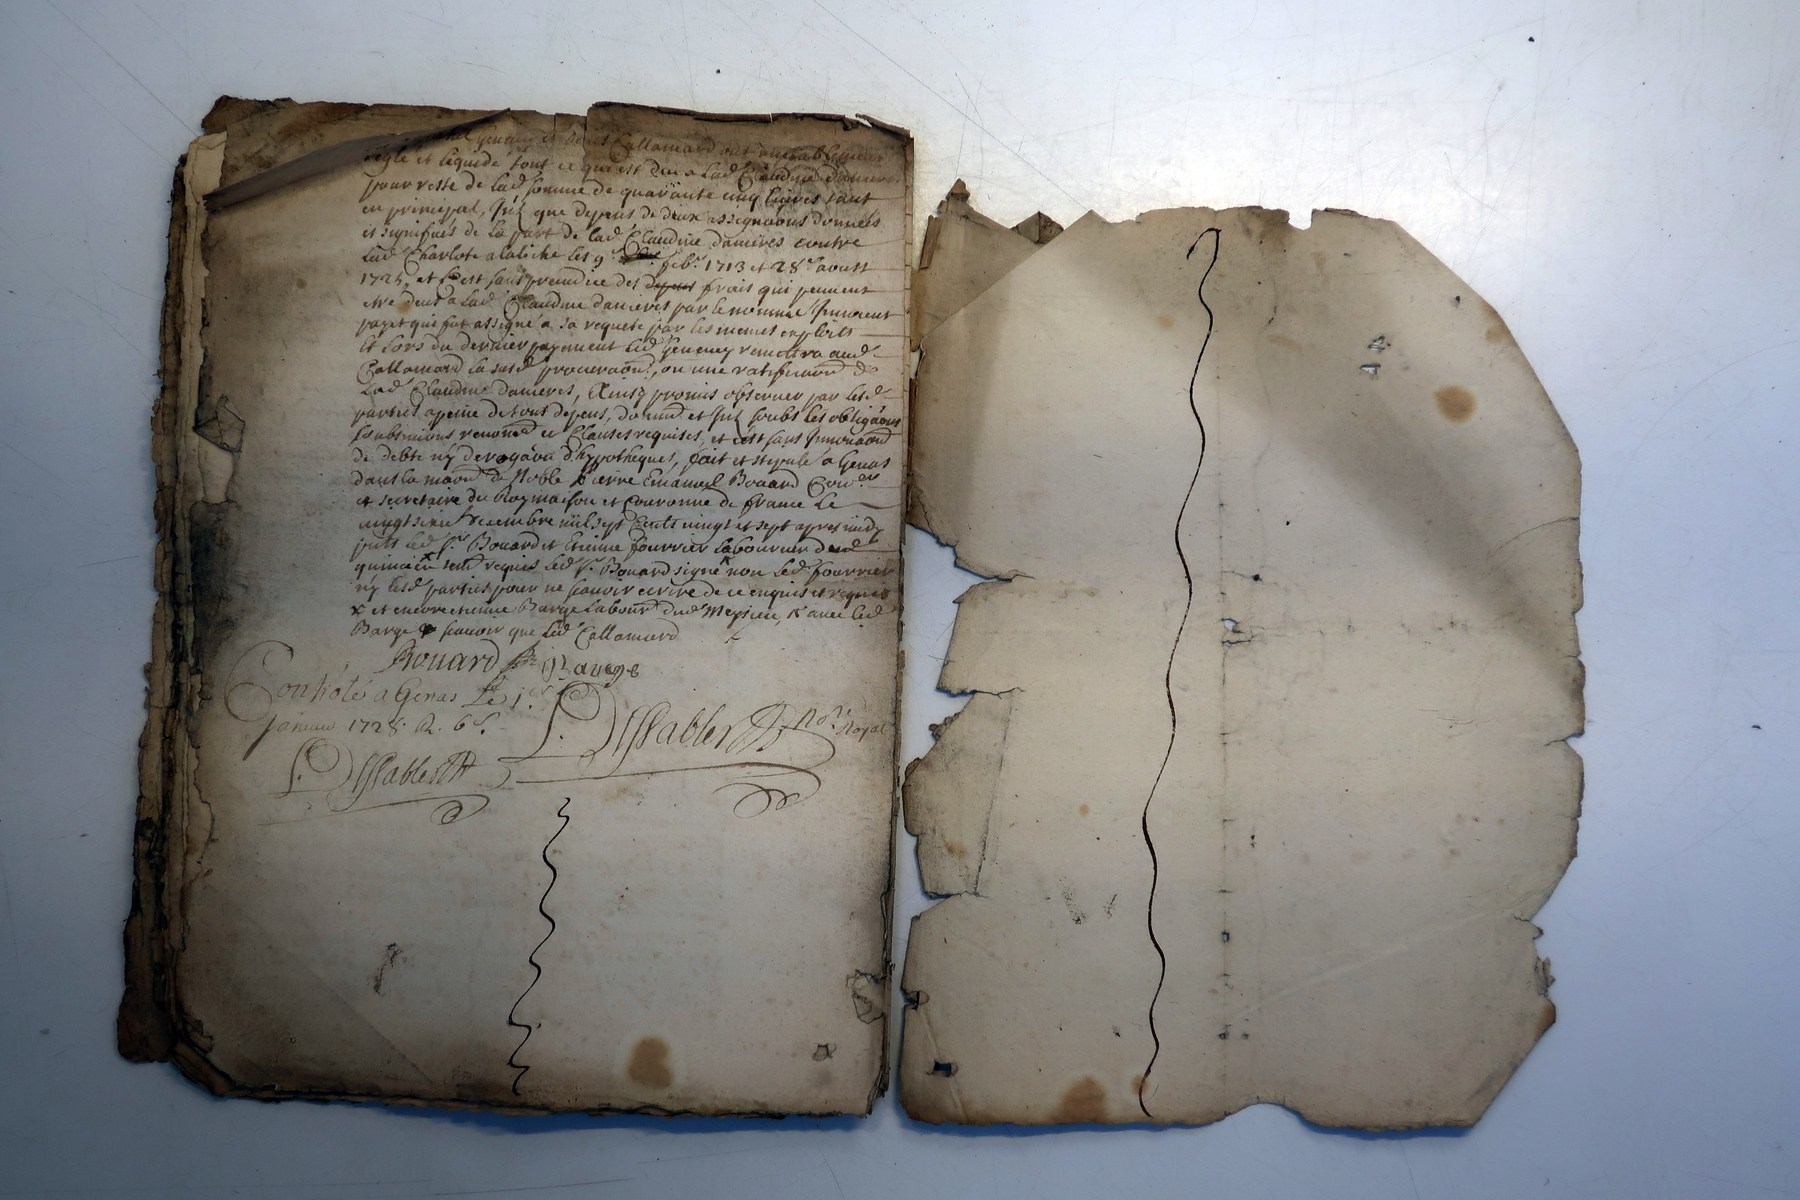 Geneuey et Denis Callamard ont amiablement
reglé et liquidé tout ce qui est deu a lad. Claudine danieres
pour reste de lad. somme de quarante cinq livres tant
en principal, que depens de deux assignaons données
et signifiées de la part de lad. Claudine danieres contre
lad. Charlote alabiche les 9e febr. 1713 et 28e aoust
1725, et c'est sans preiudice des depens frais qui peuuent
etre deus a lad. Claudine danieres par le nommé Innocent
payet qui fut assigné a sa requete par les memes exploits
Et lors du dernier payement led. Geneuey remettra aud.
Callamard la susd. procuraon, ou une ratificaon de
lad. Claudine danieres, Ainsy promis obseruer par lesd.
parties a peine de tous depens, dom. et soubs les obligaons
soubmissions renonc. et Clauses requises, et c'est sans Innouaon
de debte ny derogaon d'hypotheques, fait et stipulé a Genas
dans la maon de Noble pierre Emanuel Bouard Con.er
et secretaire du Roy maison et couronne de france le
decembre mil sept Cents vingt et sept apres midy
pnts led. sr. Bouard et Etienne fourrier laboureur
requis led. sr. Bouard signé x non led. fourrier
ny lesd. parties pour ne scauoir ecrire de ce enquis et requis
x et encore etienne Barge labour. dud. Meyzieu, x auec led.
Barge scauoir que led. Callamard
Bouard Barge
Contrôlé a Genas Le 1er
Januier 1728. R. 6 s.
Dessables Nore. Royal
Dessables